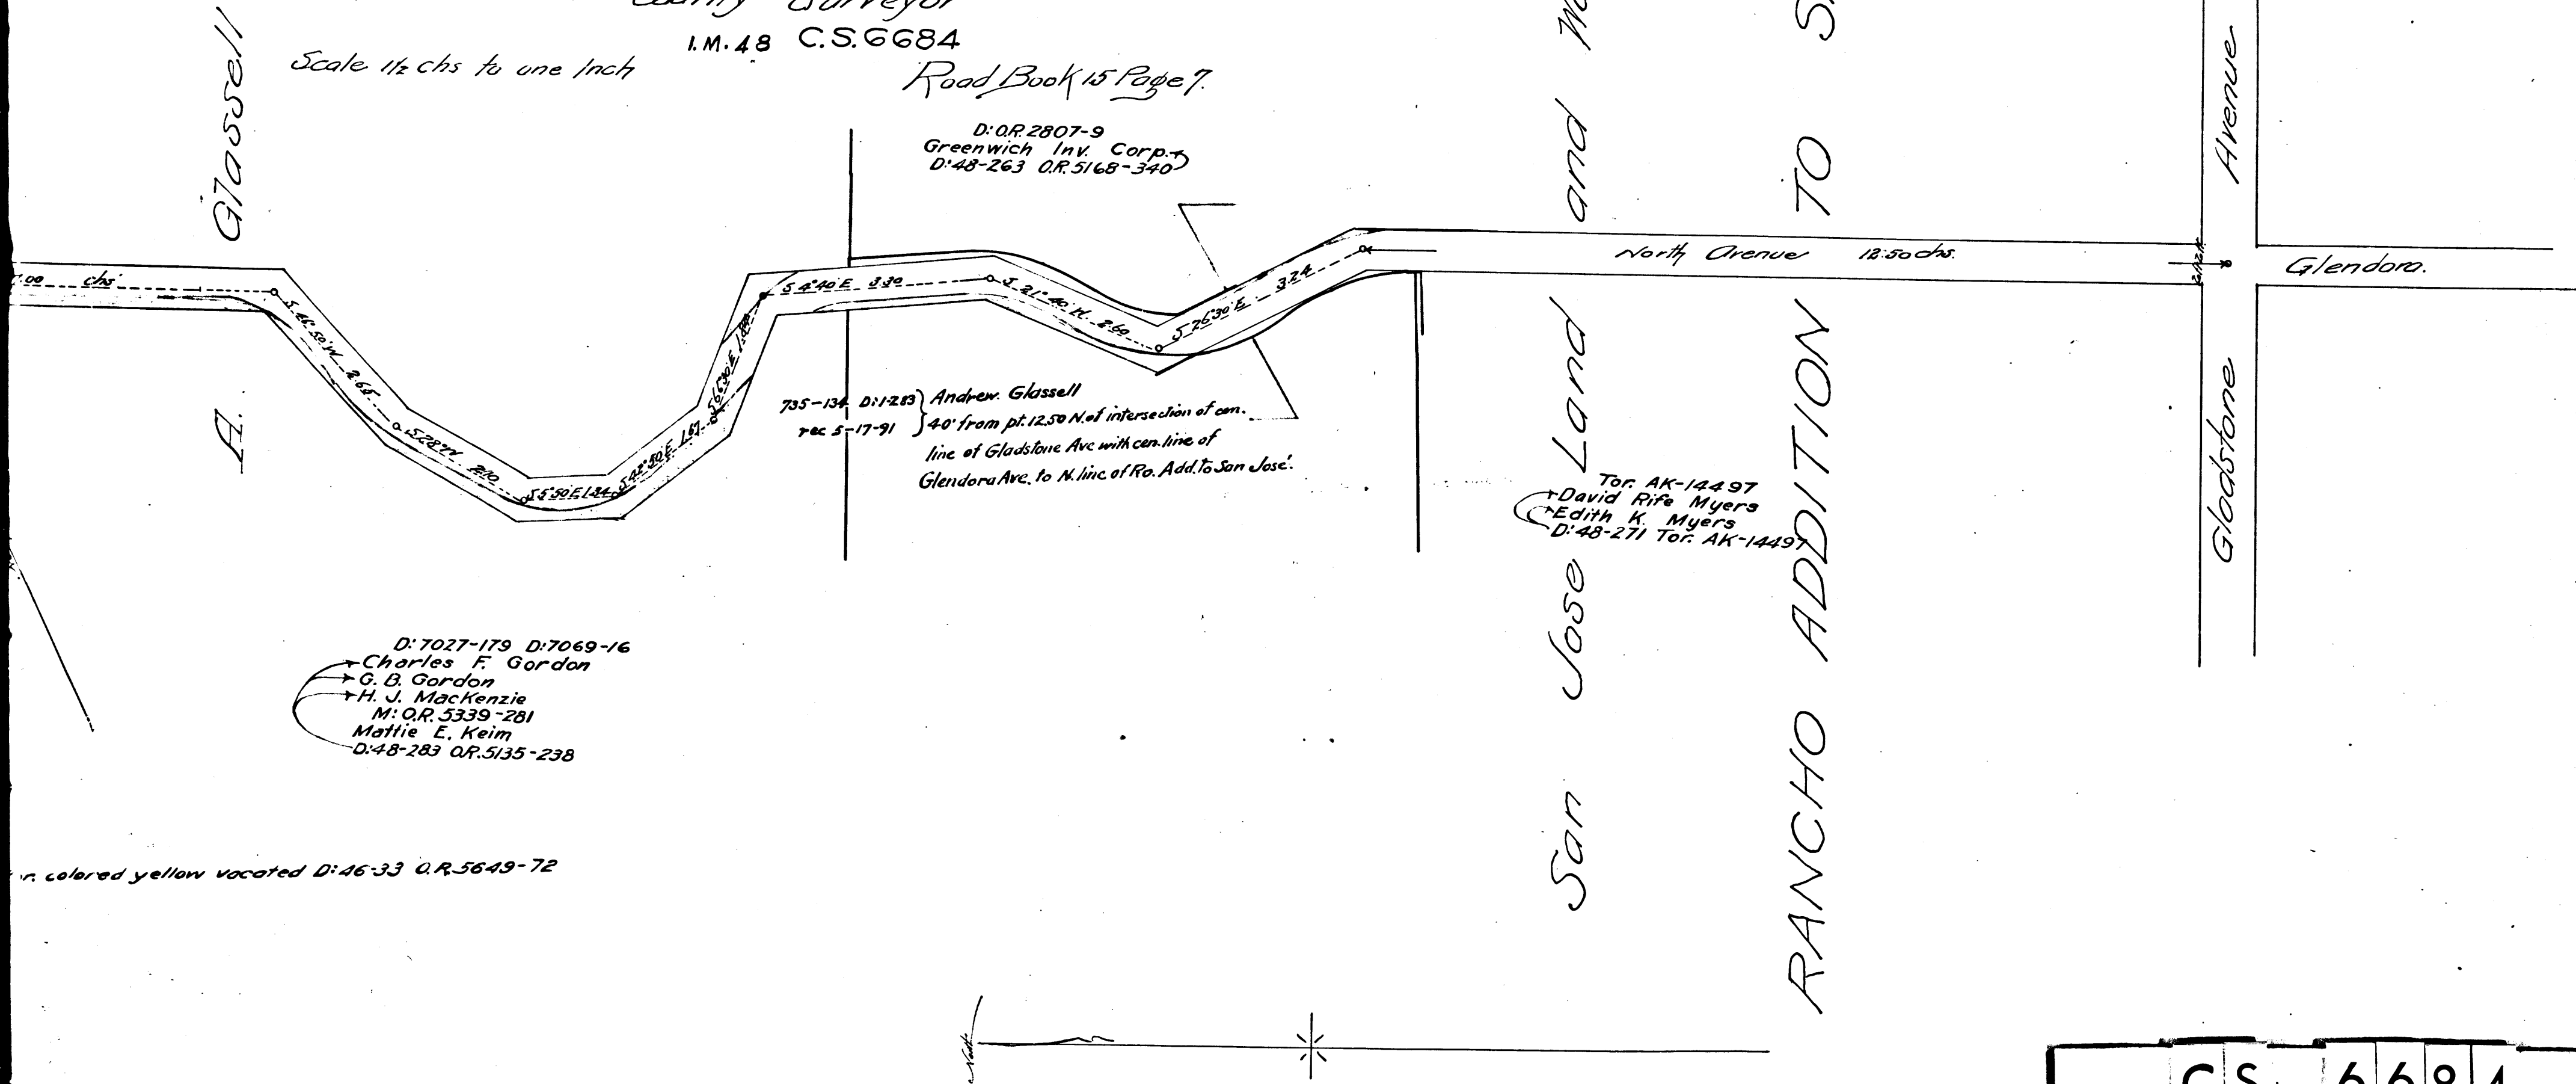 County Surveyor
I.M.48 C.S.6684
Scale 1½ chs to one Inch
Road Book 15 Page 7.
D: O.R. 2807-9
Greenwich Inv. Corp.
D:48-263 O.R.5168-340
Glassell
A.
.00 chs
S 46°50'W 2.65
S 28°W 2.10
S 5°50'E 1.34
S 42°50'E 1.67
S 4°40'E 3.30
S 21°40'W 2.60
S 26°30'E 3.24
North Avenue 12.50 chs.
Glendora.
Avenue
Gladstone
735-134 D:1-283 } Andrew Glassell
rec 5-17-91 } 40' from pt. 12.50 N. of intersection of cen.
line of Gladstone Ave with cen. line of
Glendora Ave. to N. line of Ro. Add. to San José.
Tor. AK-14497
David Rife Myers
Edith K. Myers
D:48-271 Tor. AK-14497
San Jose Land and
RANCHO ADDITION TO
D:7027-179 D:7069-16
Charles F. Gordon
G. B. Gordon
H. J. MacKenzie
M: O.R. 5339-281
Mattie E. Keim
D:48-283 O.R.5135-238
colored yellow vacated D:46-33 O.R.5649-72
C.S. 6684